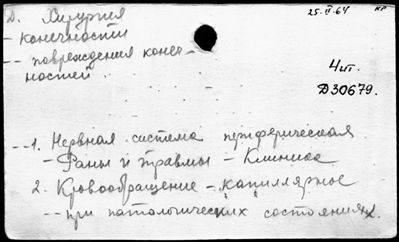 Д. Хирургия 25.II.64 НР
- конечности
-- повреждения конеч-
ностей.
4 шт.
Д30679.
--1. Нервная система периферическая
- Раны и травмы - Клиника
2. Кровообращение - капиллярное
-- при патологических состояниях.